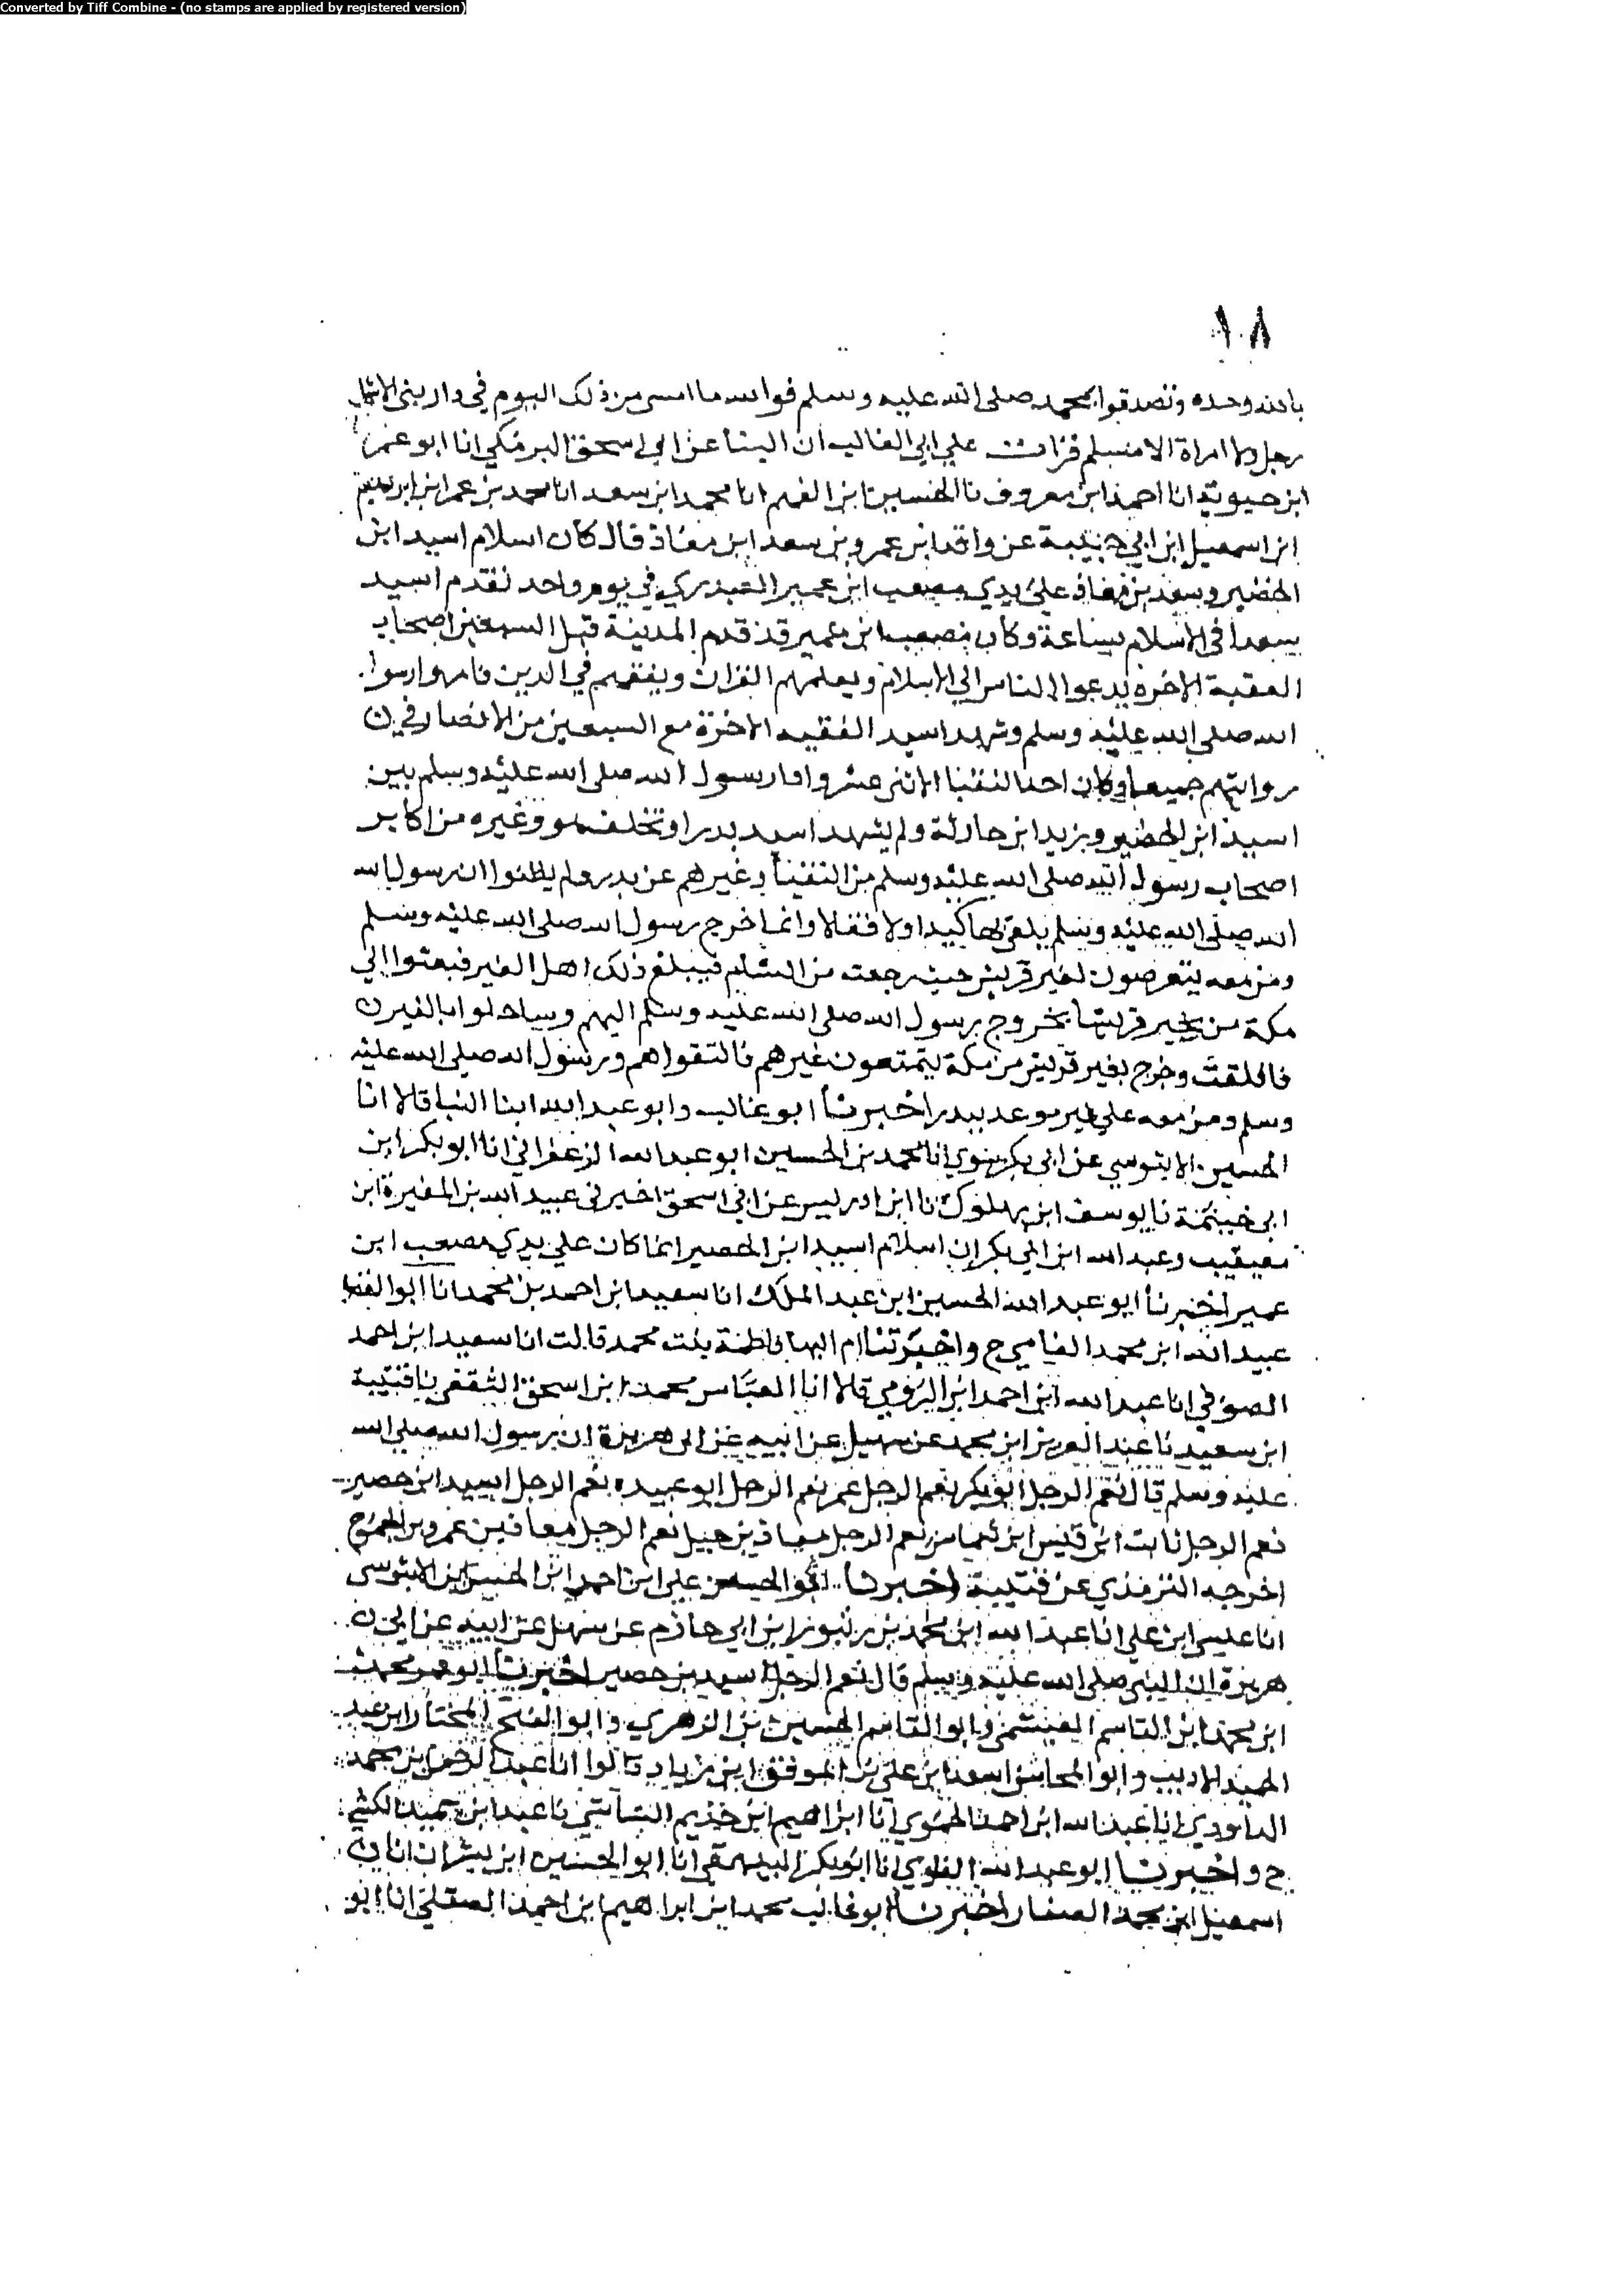 Converted by Tiff Combine - (no stamps are applied by registered version)
١٠٨
بالله وحده وتصدقوا بمحمد صلى الله عليه وسلم فوالله ما امسى من ذلك اليوم في دار بني الاشهل
رجل ولا امراة الا مسلم قرات على ابي الغالب ابن البنا عن ابي اسحق البرمكي انا ابو عمر
ابن حيوية انا احمد ابن معروف نا الحسين ابن الفهم انا محمد ابن سعد انا محمد بن عمر ابن ابرهيم
ابن اسمعيل ابن ابي حبيبة عن واقد ابن عمرو بن سعد ابن معاذ قال كان اسلام اسيد ابن
الحضير وسعد بن معاذ على يدي مصعب ابن عمير العبدري في يوم واحد تقدم اسيد
سعدا في الاسلام بساعة وكان مصعب ابن عمير قد قدم المدينة قبل السبعين اصحاب
العقبة الاخره يدعوا الناس الى الاسلام ويعلمهم القران ويفقههم في الدين فامرهوا رسول
الله صلى الله عليه وسلم وشهد اسيد العقبه الاخرة مع السبعين من الانصار في ن
روايتهم جميعا وكان احد النقبا الاثنى عشر واخا رسول الله صلى الله عليه وسلم بين
اسيد ابن الحضير وزيد ابن حارثة ولم يشهد اسيد بدرا وتخلف هو وغيره من اكابر
اصحاب رسول الله صلى الله عليه وسلم من النقبا وغيرهم عن بدر ولم يظنوا ان رسول الله
الله صلى الله عليه وسلم يلقى بها كيدا ولا قتالا وانما خرج رسول الله صلى الله عليه وسلم
ومن معه يتعرضون لعير قريش حيث رجعت من الشام فيبلغ ذلك اهل العير فبعثوا الى
مكة من يخبر قريشا بخروج رسول الله صلى الله عليه وسلم اليهم وساحلوا بالعير ن
فافلقت وخرج بغير قريش من مكة يتمتعون غيرهم فالتقوا هم ورسول الله صلى الله عليه
وسلم ومن معه على غير موعد ببدر اخبرنا ابو غالب وابو عبد الله ابنا البنا قالا انا
الحسين الابنوسي عن ابي بكر بنوي انا محمد بن الحسين ابو عبد الله الزعفراني انا ابو بكر ابن
ابي خيثمة نا يوسف ابن بهلول نا ابن ادريس عن ابن اسحق اخبرني عبيد الله بن المغيرة ابن
معيقيب وعبد الله ابن ابي بكر ان اسلام اسيد ابن الحضير انما كان على يدي مصعب ابن
عمير اخبرنا ابو عبد الله الحسين ابن عبد الملك انا سعيد ابن احمد بن محمد انا ابو الفضل
عبيد الله ابن محمد الفامي ح واخبرتنا ام البها فاطمة بنت محمد قالت انا سعيد ابن احمد
الصوفي انا عبد الله ابن احمد ابن الرومي قالا انا العباس محمد ابن اسحق الثقفي نا قتيبة
ابن سعيد نا عبد العزيز ابن محمد عن سهيل عن ابيه عن ابي هريرة ان رسول الله صلى الله
عليه وسلم قال نعم الرجل ابو بكر نعم الرجل عمر نعم الرجل ابو عبيده نعم الرجل اسيد ابن حصير
نعم الرجل ثابت ابن قيس ابن شماس نعم الرجل معاذ بن جبل نعم الرجل معاذ بن عمرو بن الجموح
اخرجه الترمذي عن قتيبة اخبرنا ابو الحسن علي ابن احمد ابن الحسن ابن الابنوسى
انا عيسى ابن علي انا عبد الله ابن محمد بن زنبور ابن ابي حازم عن سهيل عن ابيه عن ابي ن
هريرة ان النبي صلى الله عليه وسلم قال نعم الرجل اسيد بن حصير اخبرنا ابو عمر محمد
ابن محمد ابن القاسم العبشمي وابو القاسم الحسين بن الزهري وابو الفتح المختار ابن عبد
الحميد الاديب وابو المحاسن اسعد ابن علي بن الموفق ابن زياد قالوا انا عبد الرحمن ابن محمد
الداودي انا عبد الله ابن احمد الحموي انا ابراهيم ابن خزيم الشاشي نا عبد ابن حميد الكشي
ح واخبرنا ابو عبد الله الفراوي انا ابو بكر البيهقي انا ابو الحسين ابن بشران انا ن
اسمعيل ابن محمد الصفار اخبرنا ابو غالب محمد ابن ابراهيم ابن احمد الصقلي انا ابو